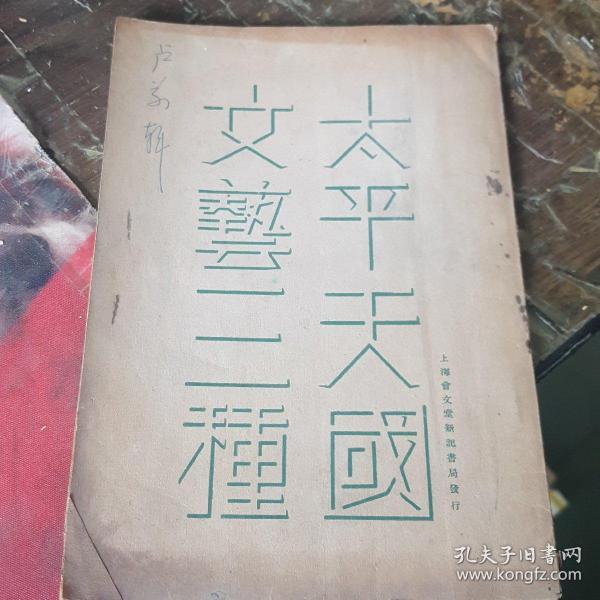 太平天國
文藝三種
上海會文堂新記書局發行
卢前輯
孔夫子旧书网
www.kongfz.com